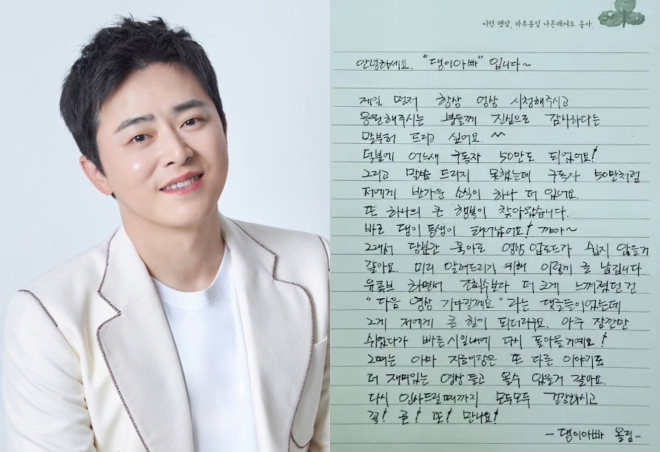 이런 행상, 하루종일 나른해져도 좋아.
안녕하세요. "댕이아빠" 입니다~
제일 먼저 항상 영상 시청해주시고
응원해주시는 분들께 진심으로 감사하다는
말부터 드리고 싶어요. ^^
덕분에 어느새 구독자 50만도 되었어요!
그리고 말씀 드리지 못했는데 구독자 50만처럼
저에게 반가운 소식이 하나 더 있어요.
또 하나의 큰 행복이 찾아왔습니다.
바로 댕이 동생이 태어났어요! 꺄아~
그래서 당분간 육아로 영상 업로드가 쉽지 않을거
같아요. 미리 알려드리기 위해 이렇게 글 남깁니다
유튜브 하면서 조회수보다 더 크게 느껴졌던 건
"다음 영상 기다릴게요" 라는 댓글들이었는데
그게 저에게 큰 힘이 되더라구요. 아주 잠깐만
쉬었다가 빠른시일내에 다시 돌아올거예요!
그때는 아마 지금이랑은 또 다른 이야기로
더 재미있는 영상 들고 올수 있을거 같아요.
다시 인사드릴때까지 모두모두 건강하시고
꼭! 곧! 또! 만나요!
- 댕이아빠 올림-